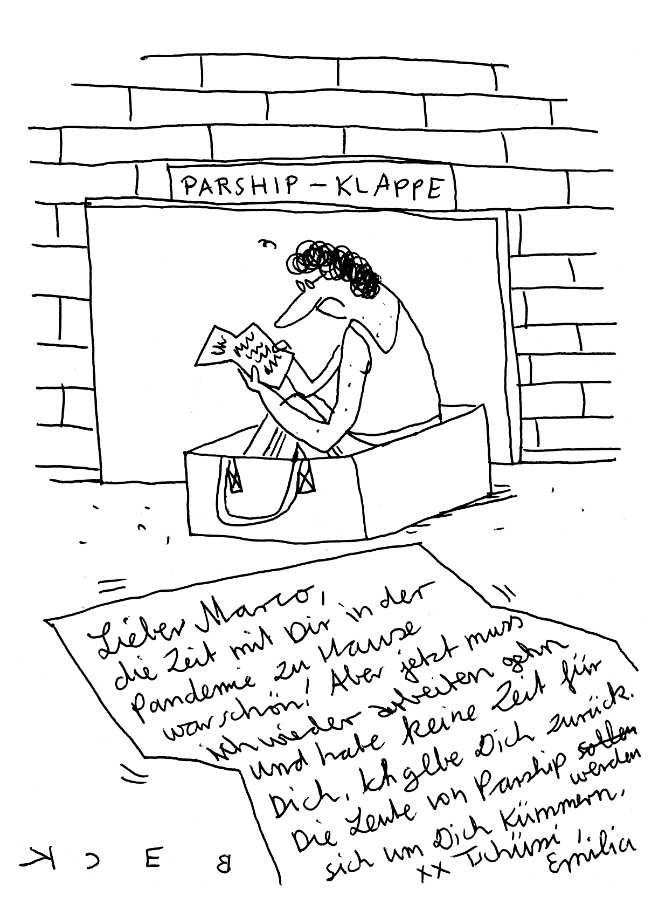 PARSHIP – KLAPPE
Lieber Marco,
die Zeit mit Dir in der
Pandemie zu Hause
war schön! Aber jetzt muss
ich wieder arbeiten gehn
und habe keine Zeit für
Dich. Ich gebe Dich zurück.
Die Leute von Parship sollen werden
sich um Dich kümmern.
xx Tschüssi,
Emilia
BECK